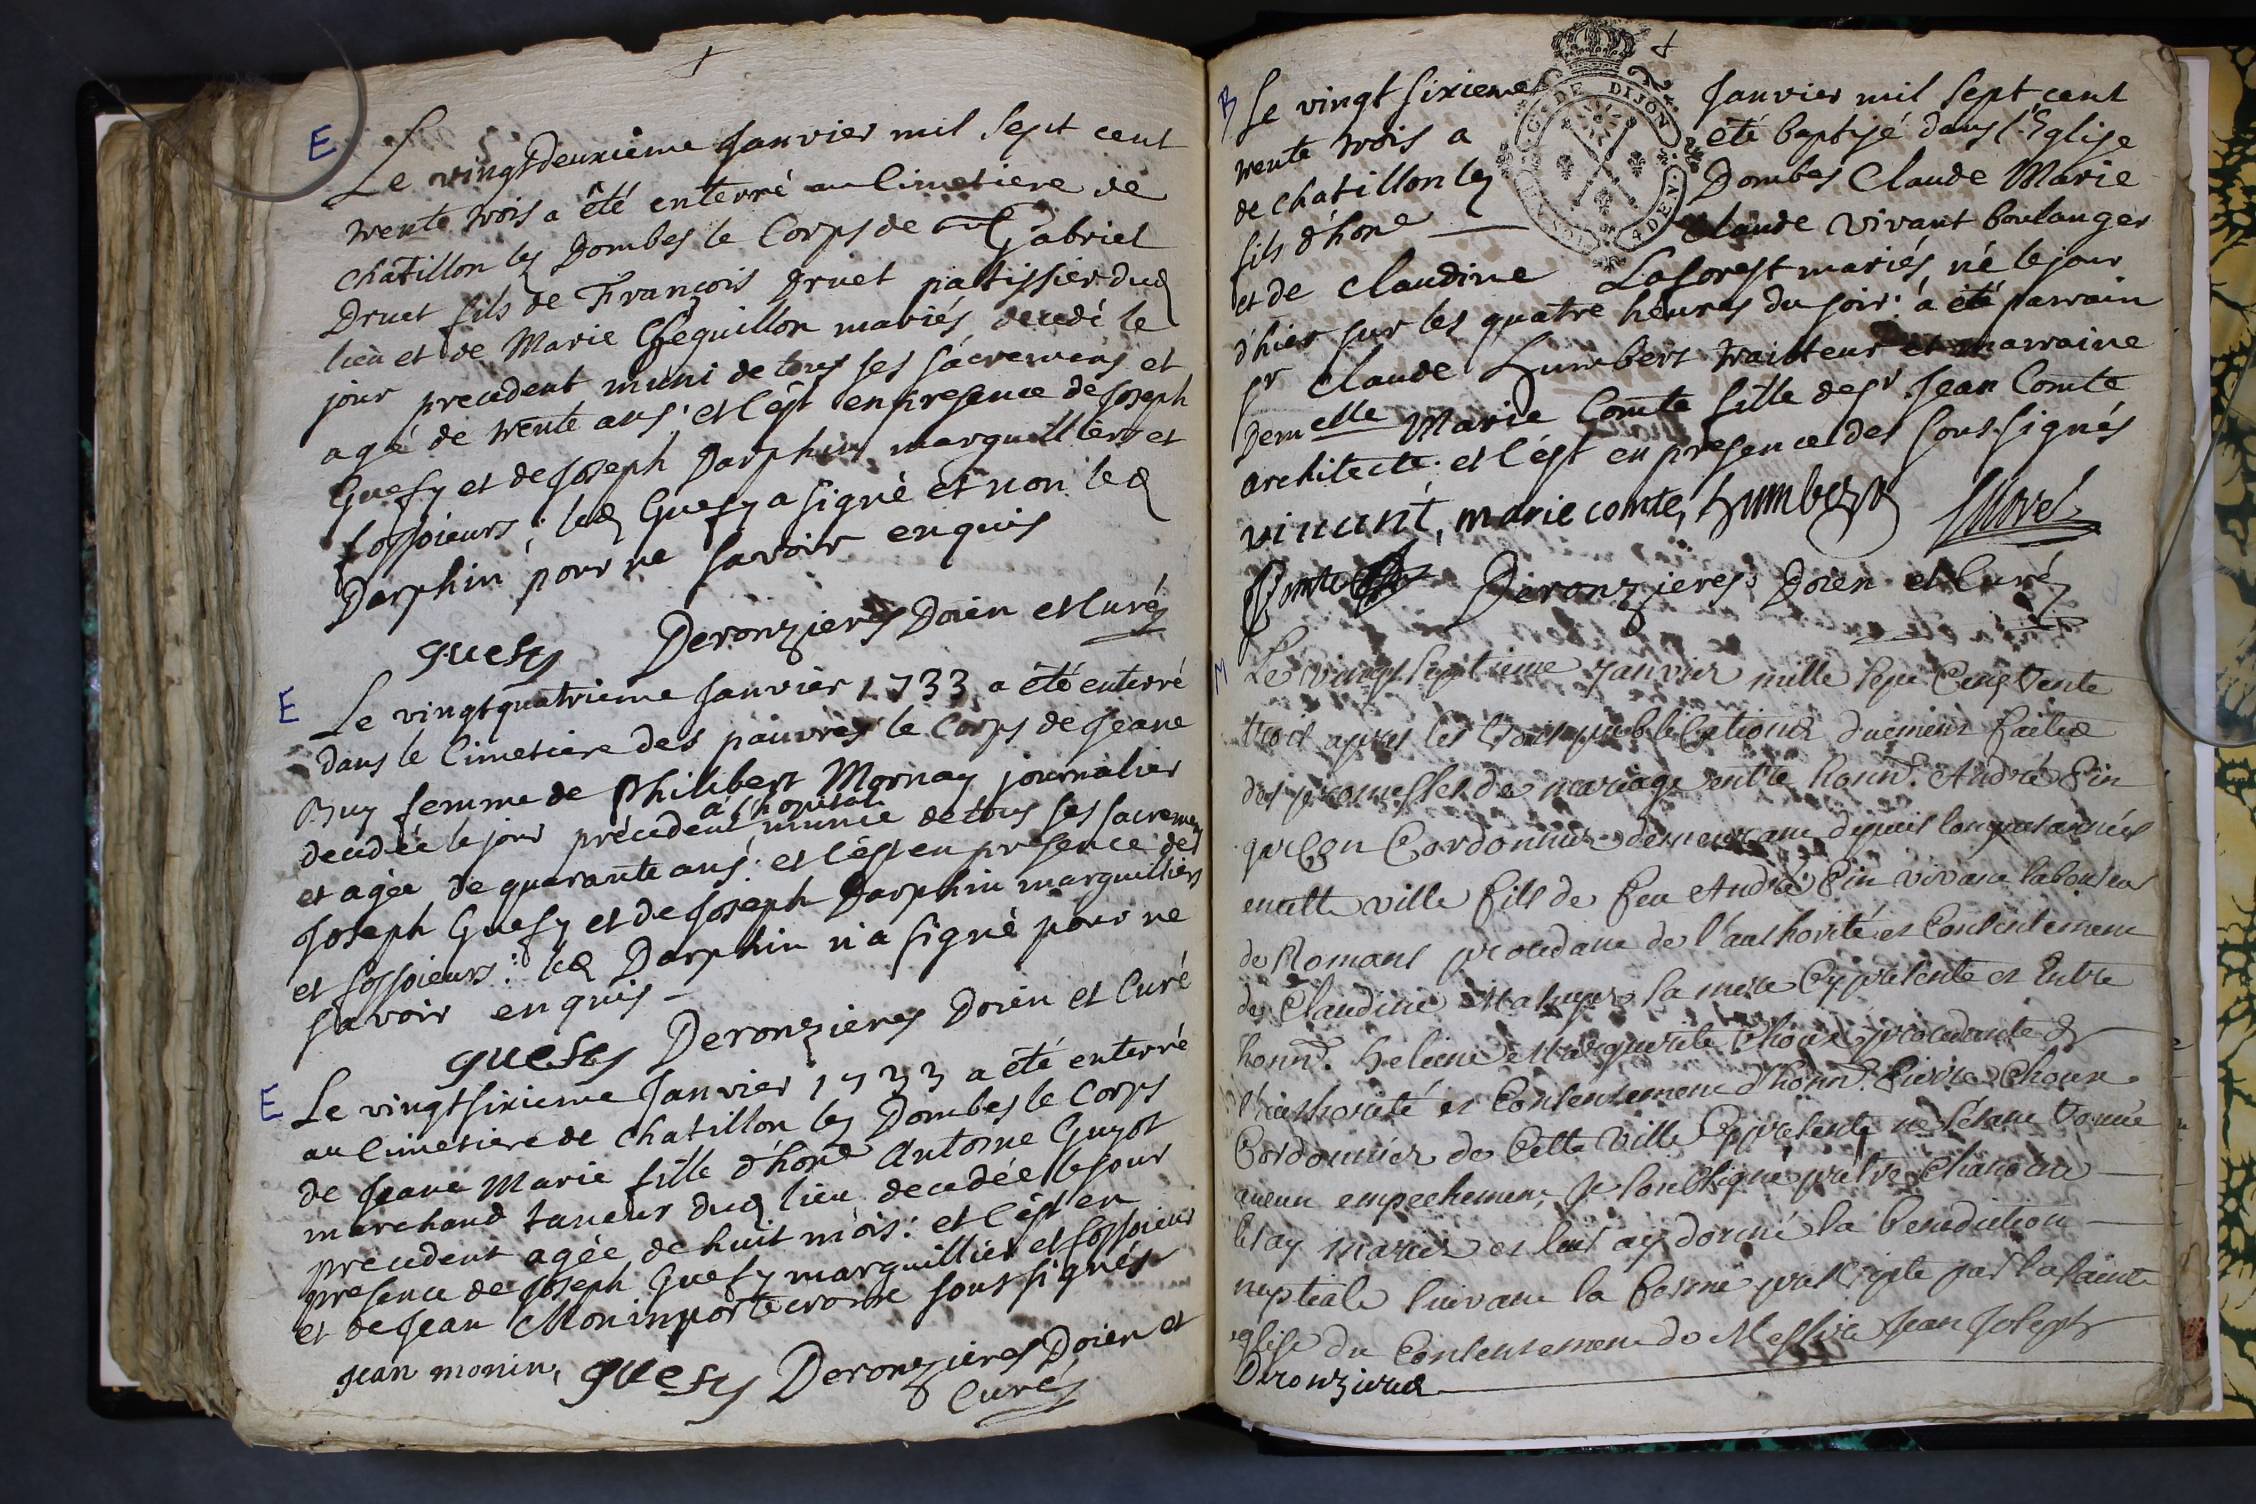 E
Le vingtdeuxiéme Janvier mil Sept cent
trente trois a été enterré au Cimetiere de
châtillon les Dombes le Corps de Gabriel
Druet fils de François Druet patissier dud
lieu et de Marie Cheguillon mariés, decedé le
jour precedent muni de tous ses sacremens et
agé de trente ans: et c'est en presence de Joseph
Guesy et de Joseph Darphin marguilliers et
fossoieurs; led Guesy a signé et non led
Darphin pour ne savoir enquis
guesy Deronzieres Doien et Curé
E
Le vingtquatrieme Janvier 1733 a été enterré
dans le Cimetiere des pauvres le Corps de Jeane
Buy femme de Philibert Mornay journalier
à l'hopital
decedée le jour précedent munie de tous ses sacremens
et agée de quarante ans: et c'est en presence de
Joseph Guesy et de Joseph Darphin marguilliers
et fossoieurs: led Darphin n'a signé pour ne
savoir enquis
guesy Deronzieres Doien et Curé
E
Le vingtsixieme Janvier 1733 a été enterré
au Cimetiere de chatillon les Dombes le Corps
de Jeane Marie fille d'hone Antoine Guyot
marchand taneur dud lieu decedée le jour
precedent agée de huit mois: et c'est en
presence de Joseph Guesy marguillier et fossoieur
et de Jean Monin porte croix soussignés
jean monin, guesy Deronzieres Doien et
Curé
B
Le vingt sixieme Janvier mil sept cent
trente trois a été baptisé dans l'Eglise
de chatillon les Dombes Claude Marie
fils d'hone Claude Vivant boulanger
et de Claudine Laforest mariés, né le jour
d'hier sur les quatre heures du soir: a été parrain
sr Claude Humbert traitteur et marraine
Demelle Marie Comte fille de sr Jean Comte
architecte; et c'est en presence des soussignés
vincent, marie comte, humbert
Comte Deronzieres Doien et Curé
M
Le vingt septieme Janvier mille sept Cens trente
trois apres les trois publications duement faites
des promesses de mariage entre honn. André Pin
garçon Cordonnier demeurant depuis longues années
en cette ville fils de feu André Pin vivant laboureur
de Romans procedant de l'authorité et Consentement
de Claudine sa mere Cy presente et entre
honn. Helene Marguerite Choux procedante de
l'authorité et Consentement d'honn. Pierre Choux
Cordonnier de Cette Ville Cy present ne s'étant trouvé
aucun empechement, Je soussigné prêtre Chanoine
les ay mariés et leur ay donné la benediction
nuptiale suivant la forme prescripte par la sainte
eglise du Consentement de Messire Jean Joseph
Deronzieres
GEN. DE DIJON